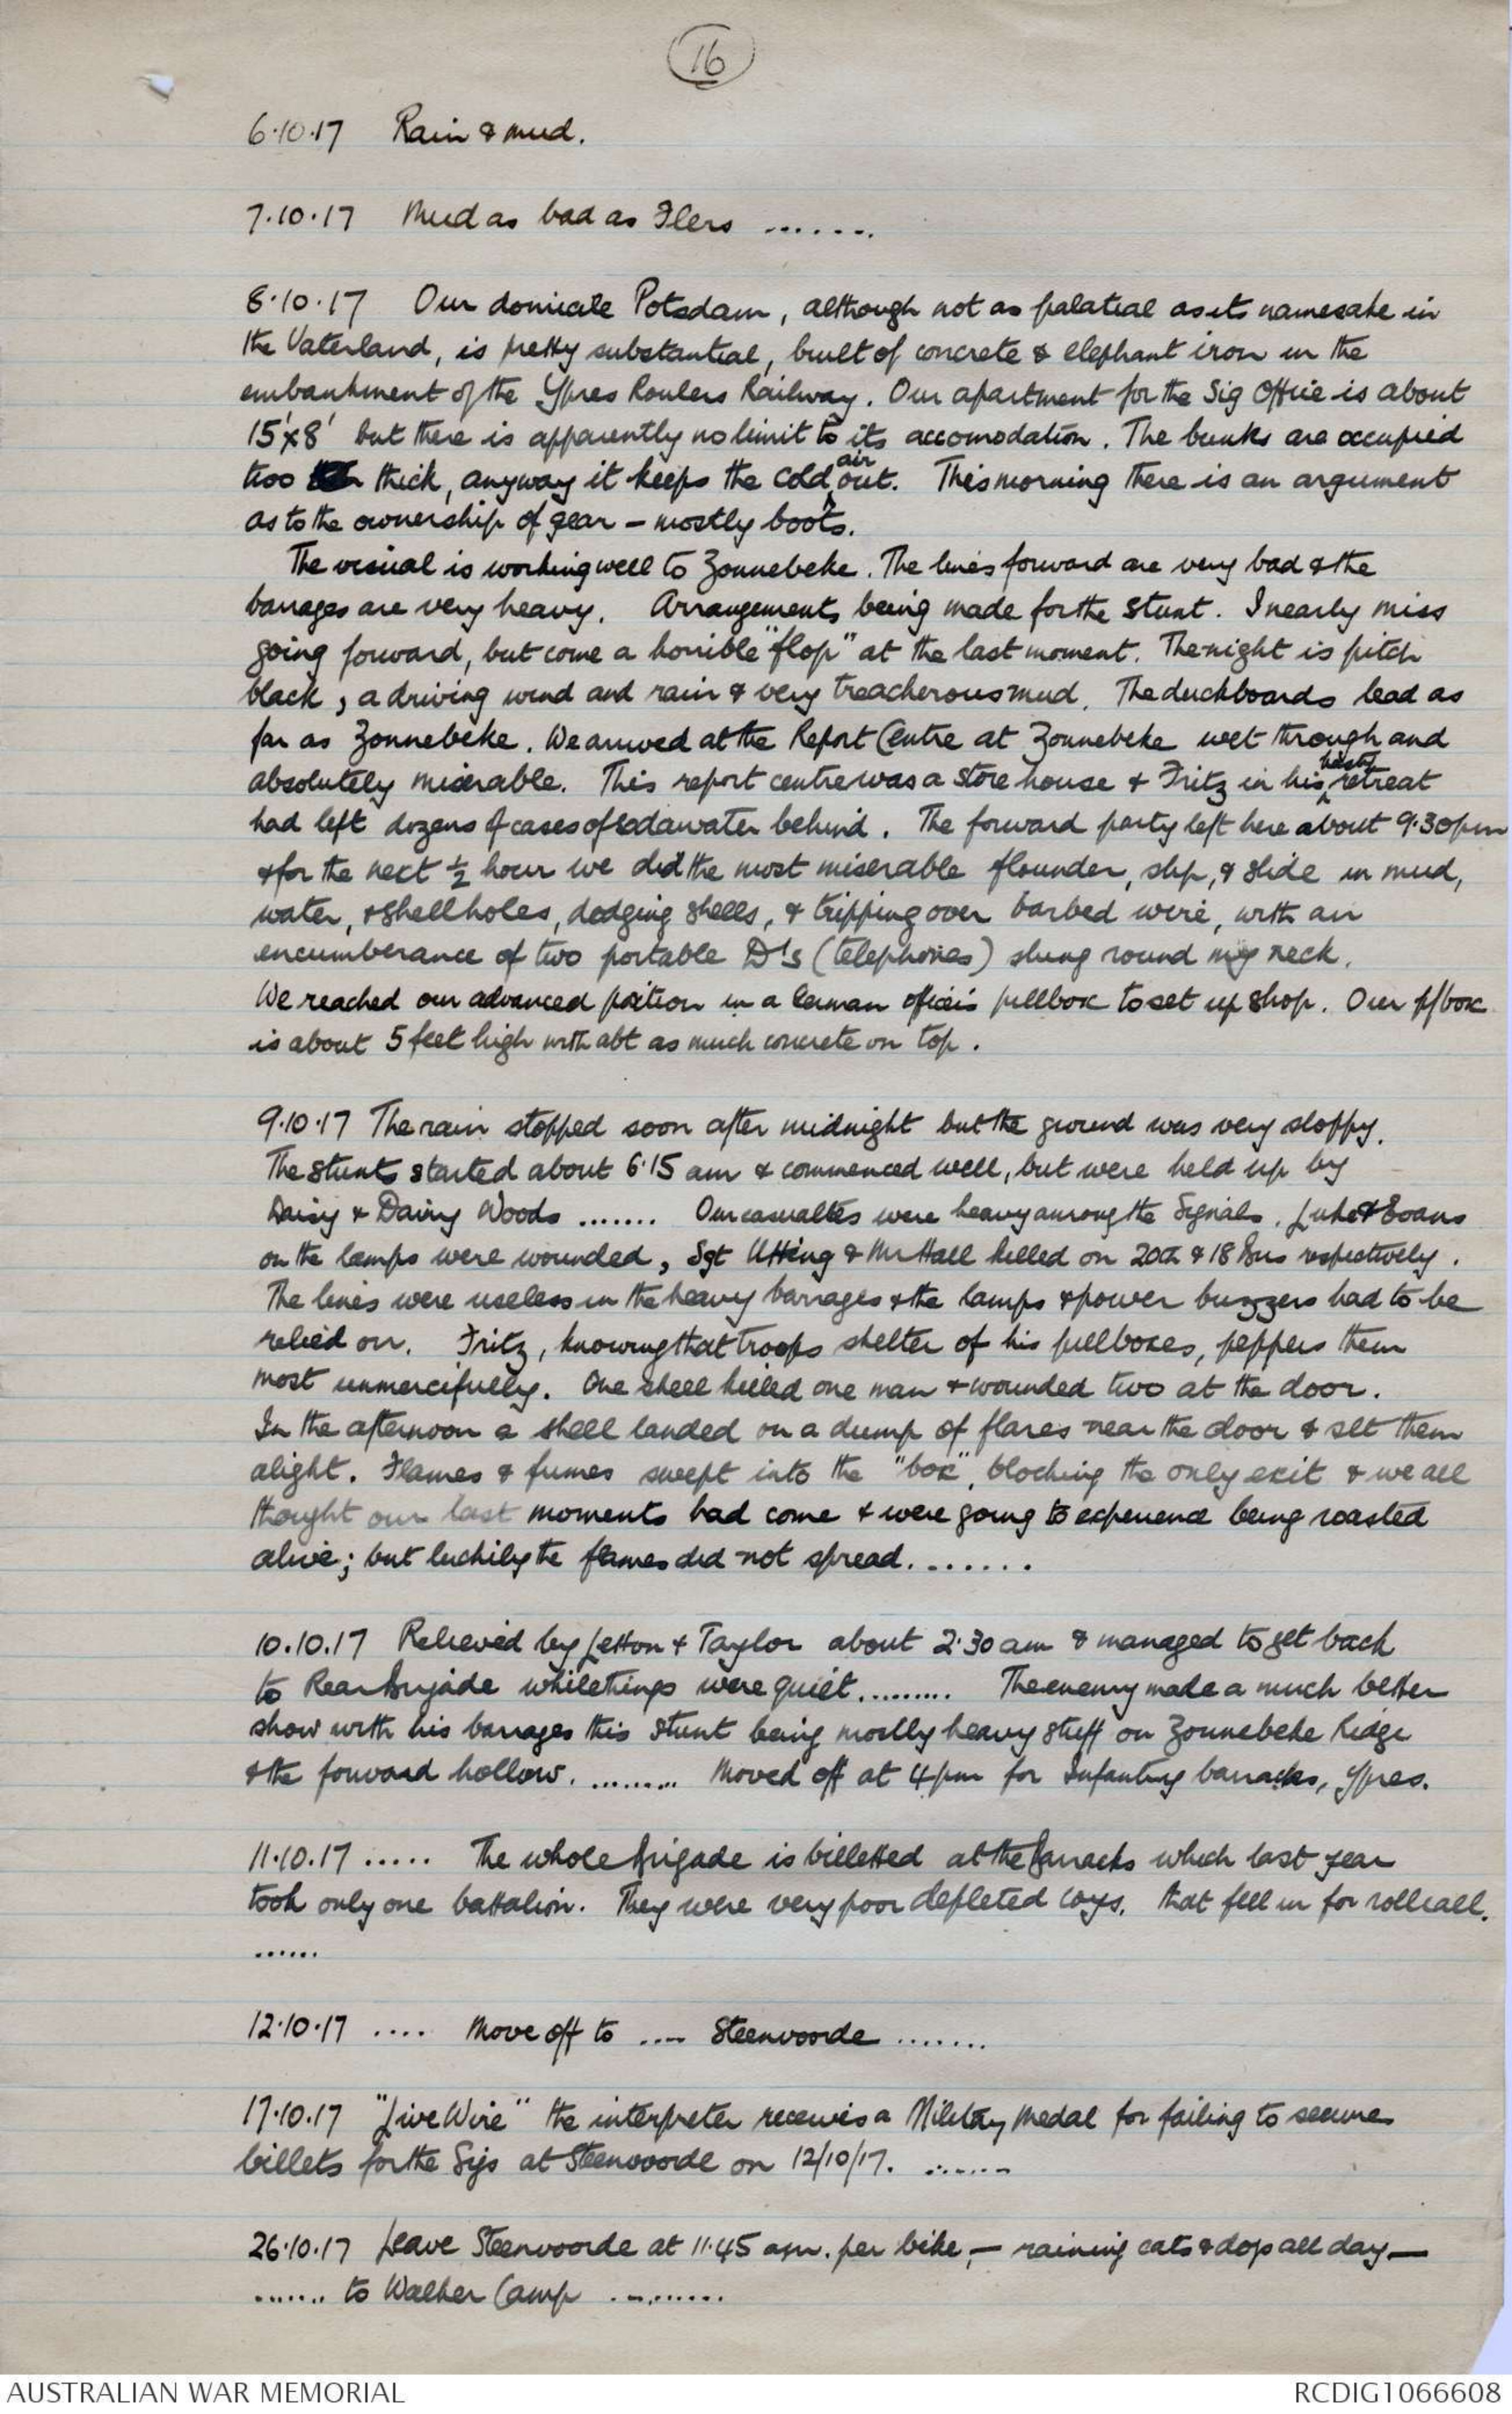 16
6.10.17 Rain & mud.
7.10.17 Mud as bad as Flers .......
8.10.17 Our domicile Potsdam, although not as palatial as its namesake in
the Vaterland, is pretty substantial, built of concrete & elephant iron in the
embankment of the Ypres Roulers Railway. Our apartment for the Sig Office is about
15'x8' but there is apparently no limit to its accomodation. The bunks are occupied
two thick, anyway it keeps the cold air out. This morning there is an argument
as to the ownership of gear - mostly boots.
The visual is working well to Zonnebeke. The lines forward are very bad & the
barrages are very heavy. Arrangements being made for the stunt. I nearly miss
going forward, but come a horrible "flop" at the last moment. The night is pitch
black, a driving wind and rain & very treacherous mud. The duckboards lead as
far as Zonnebeke. We arrived at the Report Centre at Zonnebeke wet through and
absolutely miserable. This report centre was a store house & Fritz in his hasty retreat
had left dozens of cases of sodawater behind. The forward party left here about 9.30pm
& for the next ½ hour we did the most miserable flounder, slip, & slide in mud,
water, & shellholes, dodging shells, & tripping over barbed wire, with an
encumberance of two portable D's (telephones) slung round my neck.
We reached our advanced position in a German officers pillbox to set up shop. Our p/box
is about 5 feet high with abt as much concrete on top.
9.10.17 The rain stopped soon after midnight but the ground was very sloppy.
The stunts started about 6.15 am & commenced well, but were held up by
Daisy & Dairy Woods ....... Our casualties were heavy among the Signals. Luke & Evans
on the lamps were wounded, Sgt Utting & Mr Hall killed on 20th & 18 Bns respectively.
The lines were useless in the heavy barrages & the lamps & power buzzers had to be
relied on. Fritz, knowing that troops shelter of his pillboxes, peppers them
most unmercifully. One shell killed one man & wounded two at the door.
In the afternoon a shell landed on a dump of flares near the door & set them
alight. Flames & fumes swept into the "box", blocking the only exit & we all
thought our last moments had come & were going to experience being roasted
alive; but luckily the flames did not spread.......
10.10.17 Relieved by Letton & Taylor about 2.30 am & managed to get back
to Rear Brigade while things were quiet.......... The enemy made a much better
show with his barrages this stunt being mostly heavy stuff on Zonnebeke Ridge
& the forward hollow. ......... Moved off at 4 pm for Infantry barracks, Ypres.
11.10.17 ..... The whole Brigade is billetted at the Barracks which last year
took only one battalion. They were very poor depleted coys. that fell in for rollcall.
......
12.10.17 .... Move off to .... Steenvoorde .......
17.10.17 "Live Wire" the interpreter receives a Military Medal for failing to secure
billets for the Sigs at Steenvoorde on 12/10/17. .......
26.10.17 Leave Steenvoorde at 11.45 am. per bike, - raining cats & dogs all day -
...... to Walker Camp .........
AUSTRALIAN WAR MEMORIAL
RCDIG1066608